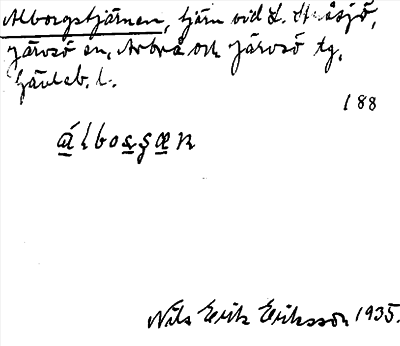 Alborgstjärnen, tjärn vid L. Stråsjö,
Järvsö sn, Arbrå och Järvsö tg,
Gävleb. l.
188
álborgæn
Nils Erik Eriksson 1935.